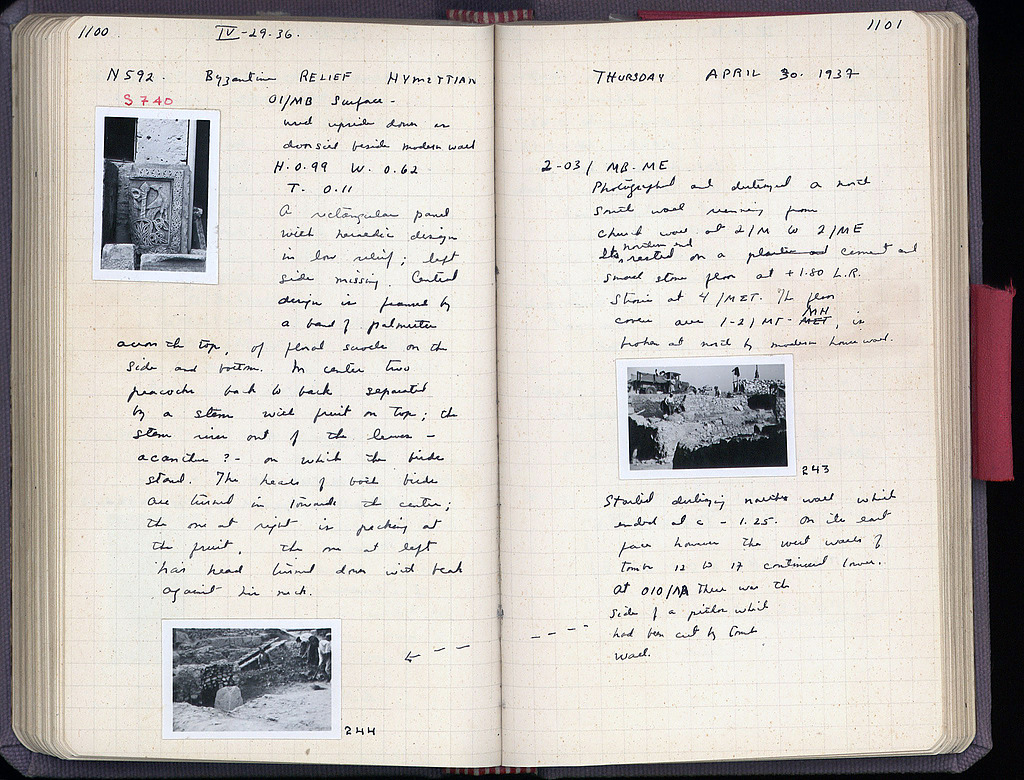 1100
IV-29-36.
N592. Byzantine RELIEF HYMETTIAN
S 740
01/MB Surface -
used upside down as
doorsill beside modern wall
H. 0.99 W. 0.62
T. 0.11
A rectangular panel
with heraldic design
in low relief; left
side missing. Central
design is framed by
a band of palmettes
across the top, of floral scrolls on the
side and bottom. In center two
peacocks back to back separated
by a stem with fruit on top; the
stem rises out of the leaves -
acanthus? - on which the birds
stand. The heads of both birds
are turned in towards the center;
the one at right is pecking at
the fruit, the one at left
has head turned down with beak
against his neck.
244
1101
THURSDAY APRIL 30. 1937
2-03/ MB-ME
Photographed and destroyed a north
south wall running from
church wall at 2/M to 2/ME
Its northern end rested on a cement and
small stone floor at +1.80 L.R.
at 4/MET. The floor
covers area 1-2/MT- MH, is
broken at north by modern house wall.
243
Started destroying wall which
ended at c - 1.25. On its east
face however the west walls of
tombs 12 to 17 continued lower.
At 010/ there was the
side of a pithos which
had been cut by tomb
wall.